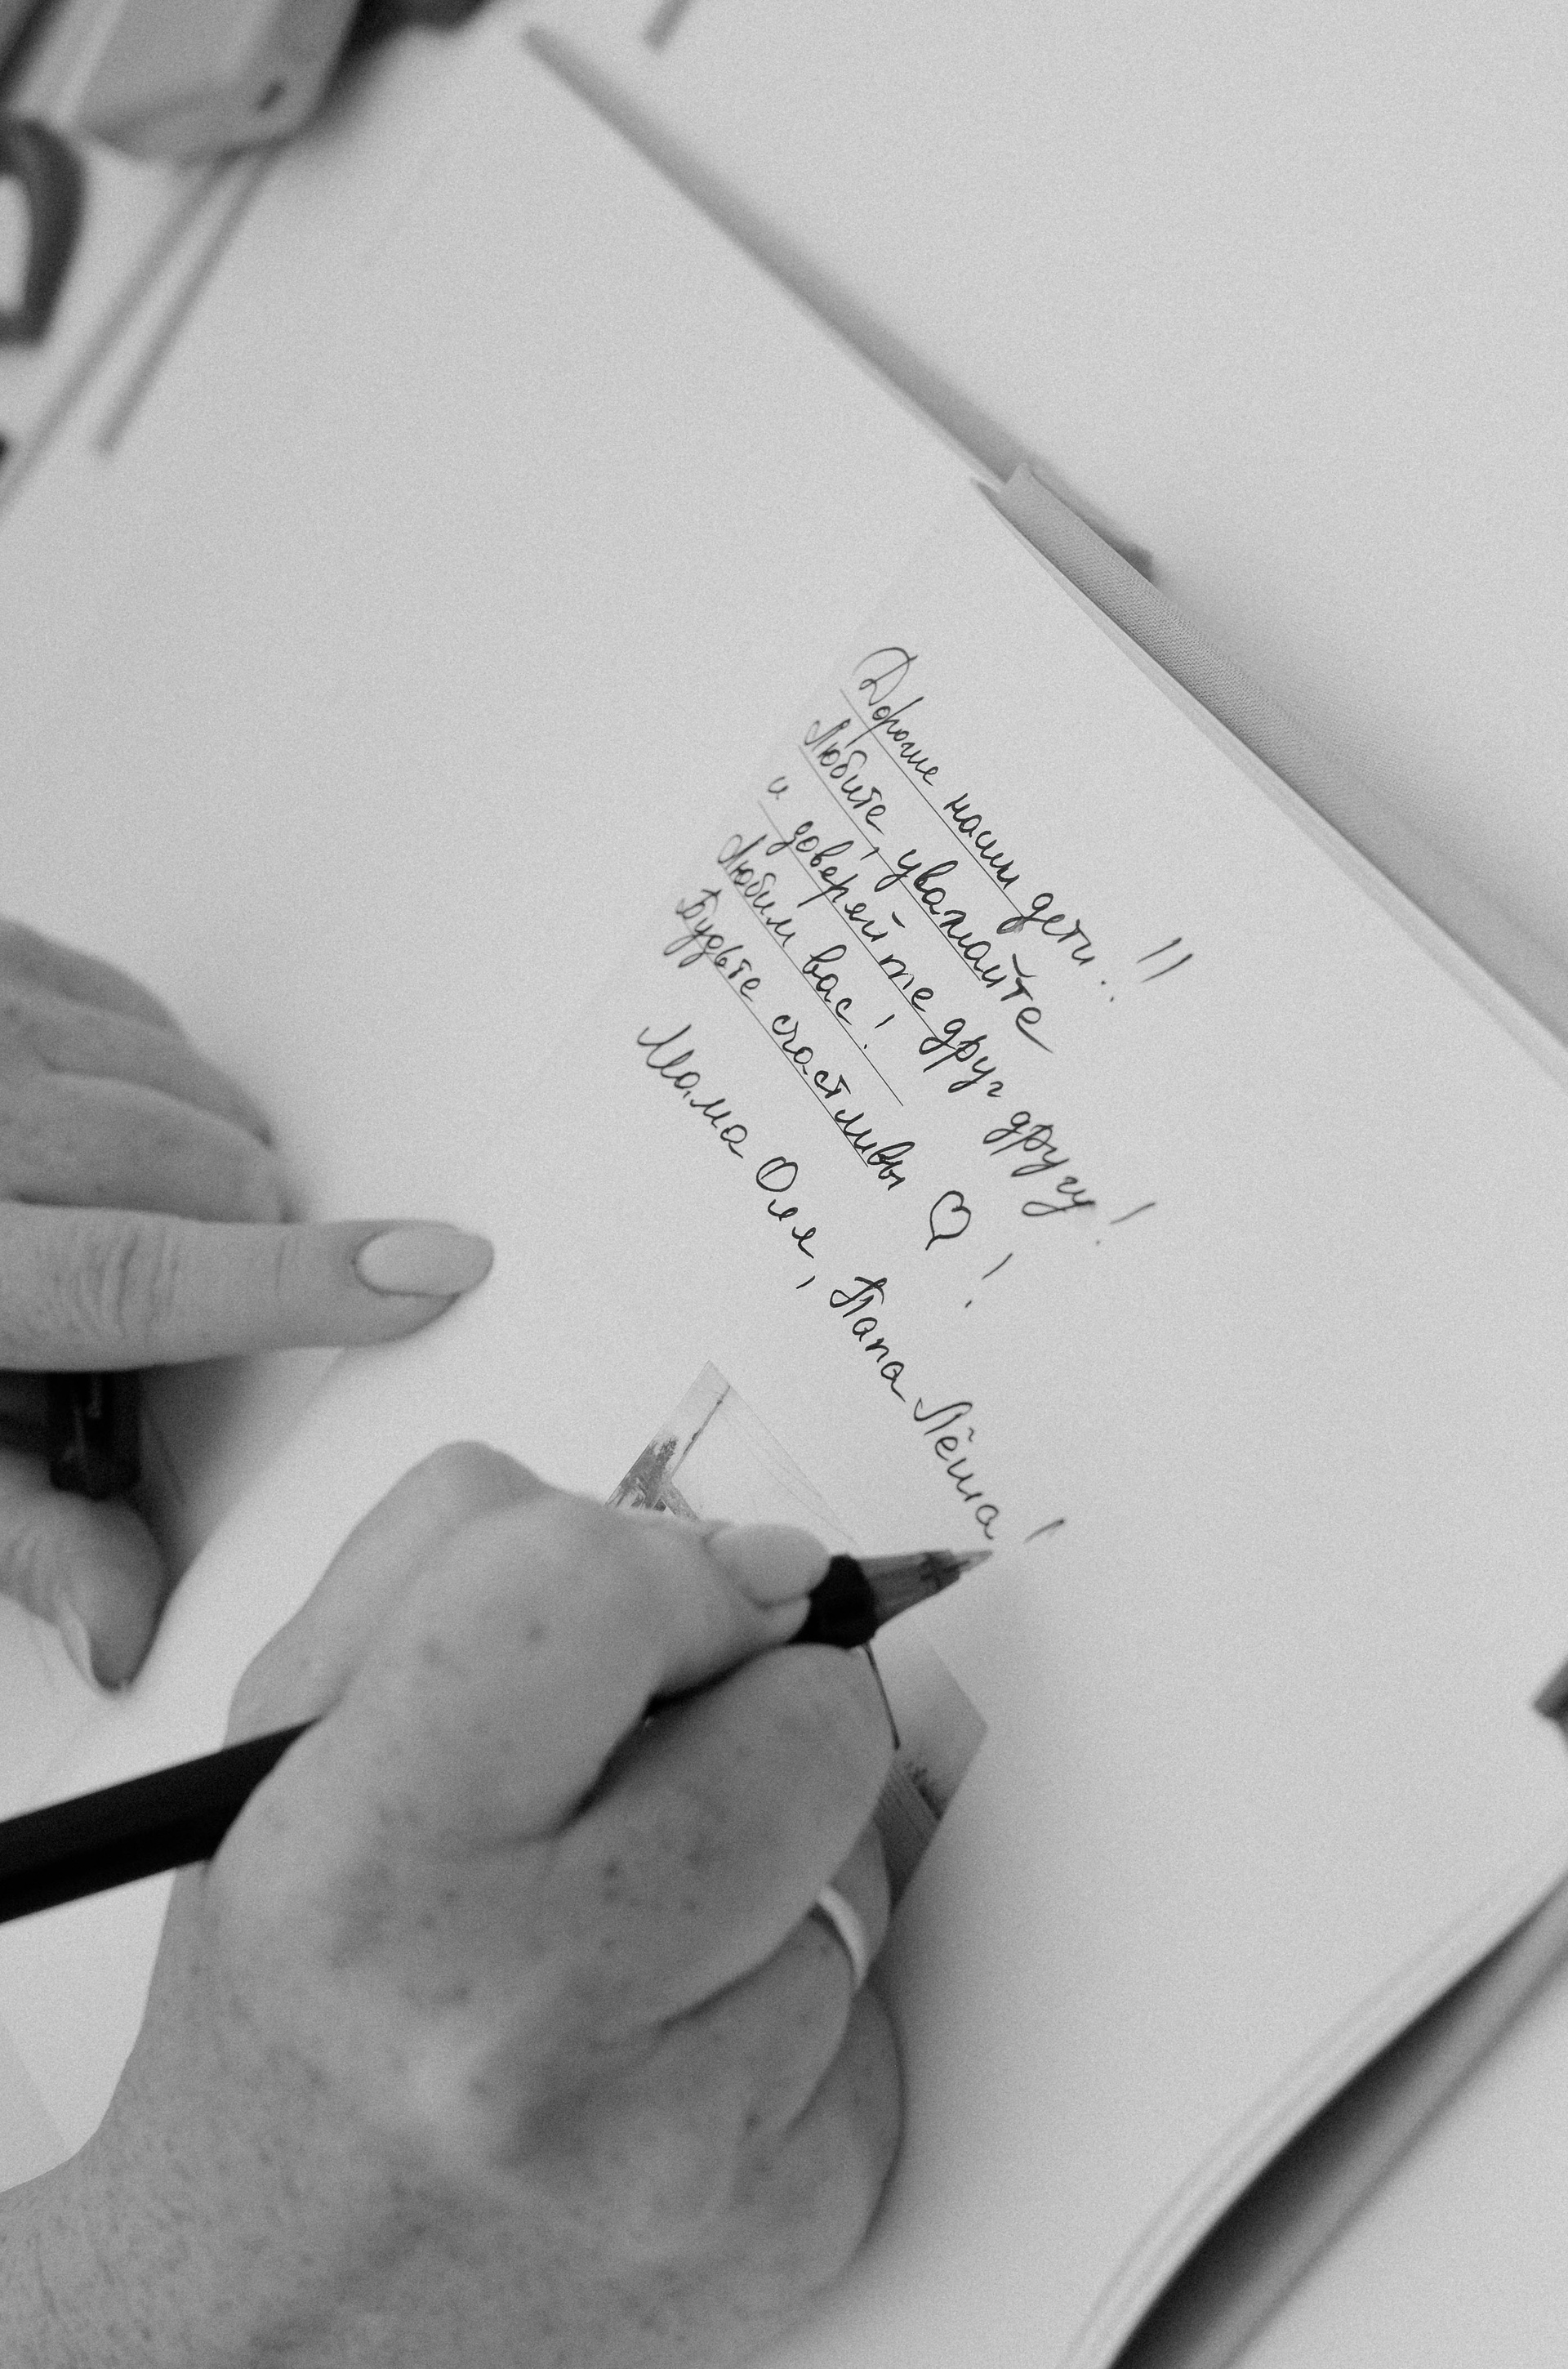 Дорогие наши дети!!
Любите, уважайте
и доверяйте друг другу!
Любим вас!
Будьте счастливы ♡!
Мама Оля, Папа Лёша!